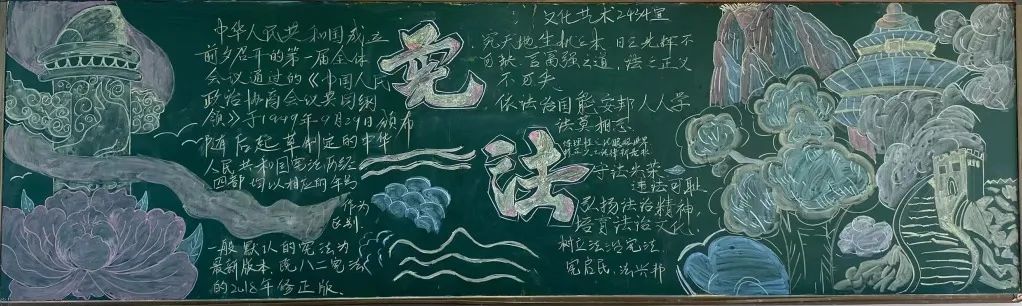 中华人民共和国成立
前夕召开的第一届全体
会议通过的《中国人民
政治协商会议共同纲
领》于1949年9月29日颁布
随后起草制定的中华
人民共和国宪法历经
四部均以相应的年号
作为
区别.
一般默认的宪法为
最新版本,既八二宪法
的2018年修正版.
宪
法
文化艺术2434宣
宪天地生机之本 日之光辉不
言高强之道,法之正义
不可失
依法治国能安邦人人学
法莫相忘
守法光荣
违法可耻
弘扬法治精神,
培育法治文化.
树立法治宪法
宪启民,法兴邦